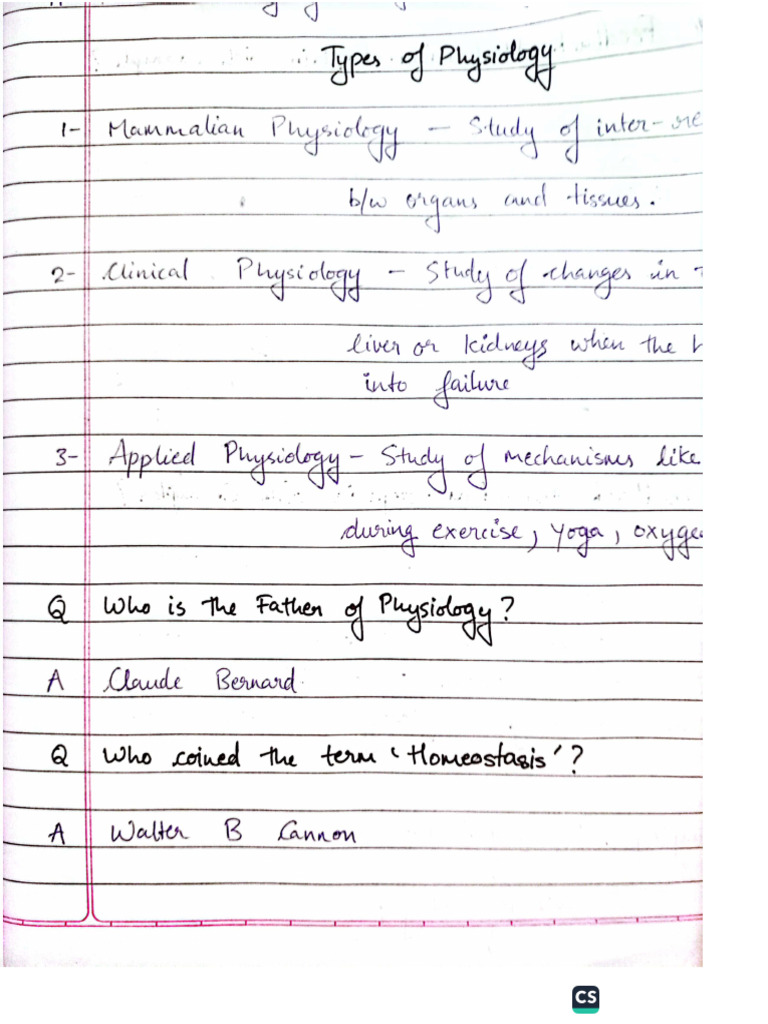 Types of Physiology
1- Mammalian Physiology – Study of inter-re
b/w organs and tissues.
2- Clinical Physiology – Study of changes in
liver or kidneys when the h
into failure
3- Applied Physiology – Study of mechanisms like
during exercise, yoga, oxyge
Q Who is the Father of Physiology?
A Claude Bernard
Q Who coined the term 'Homeostasis'?
A Walter B Cannon
CS